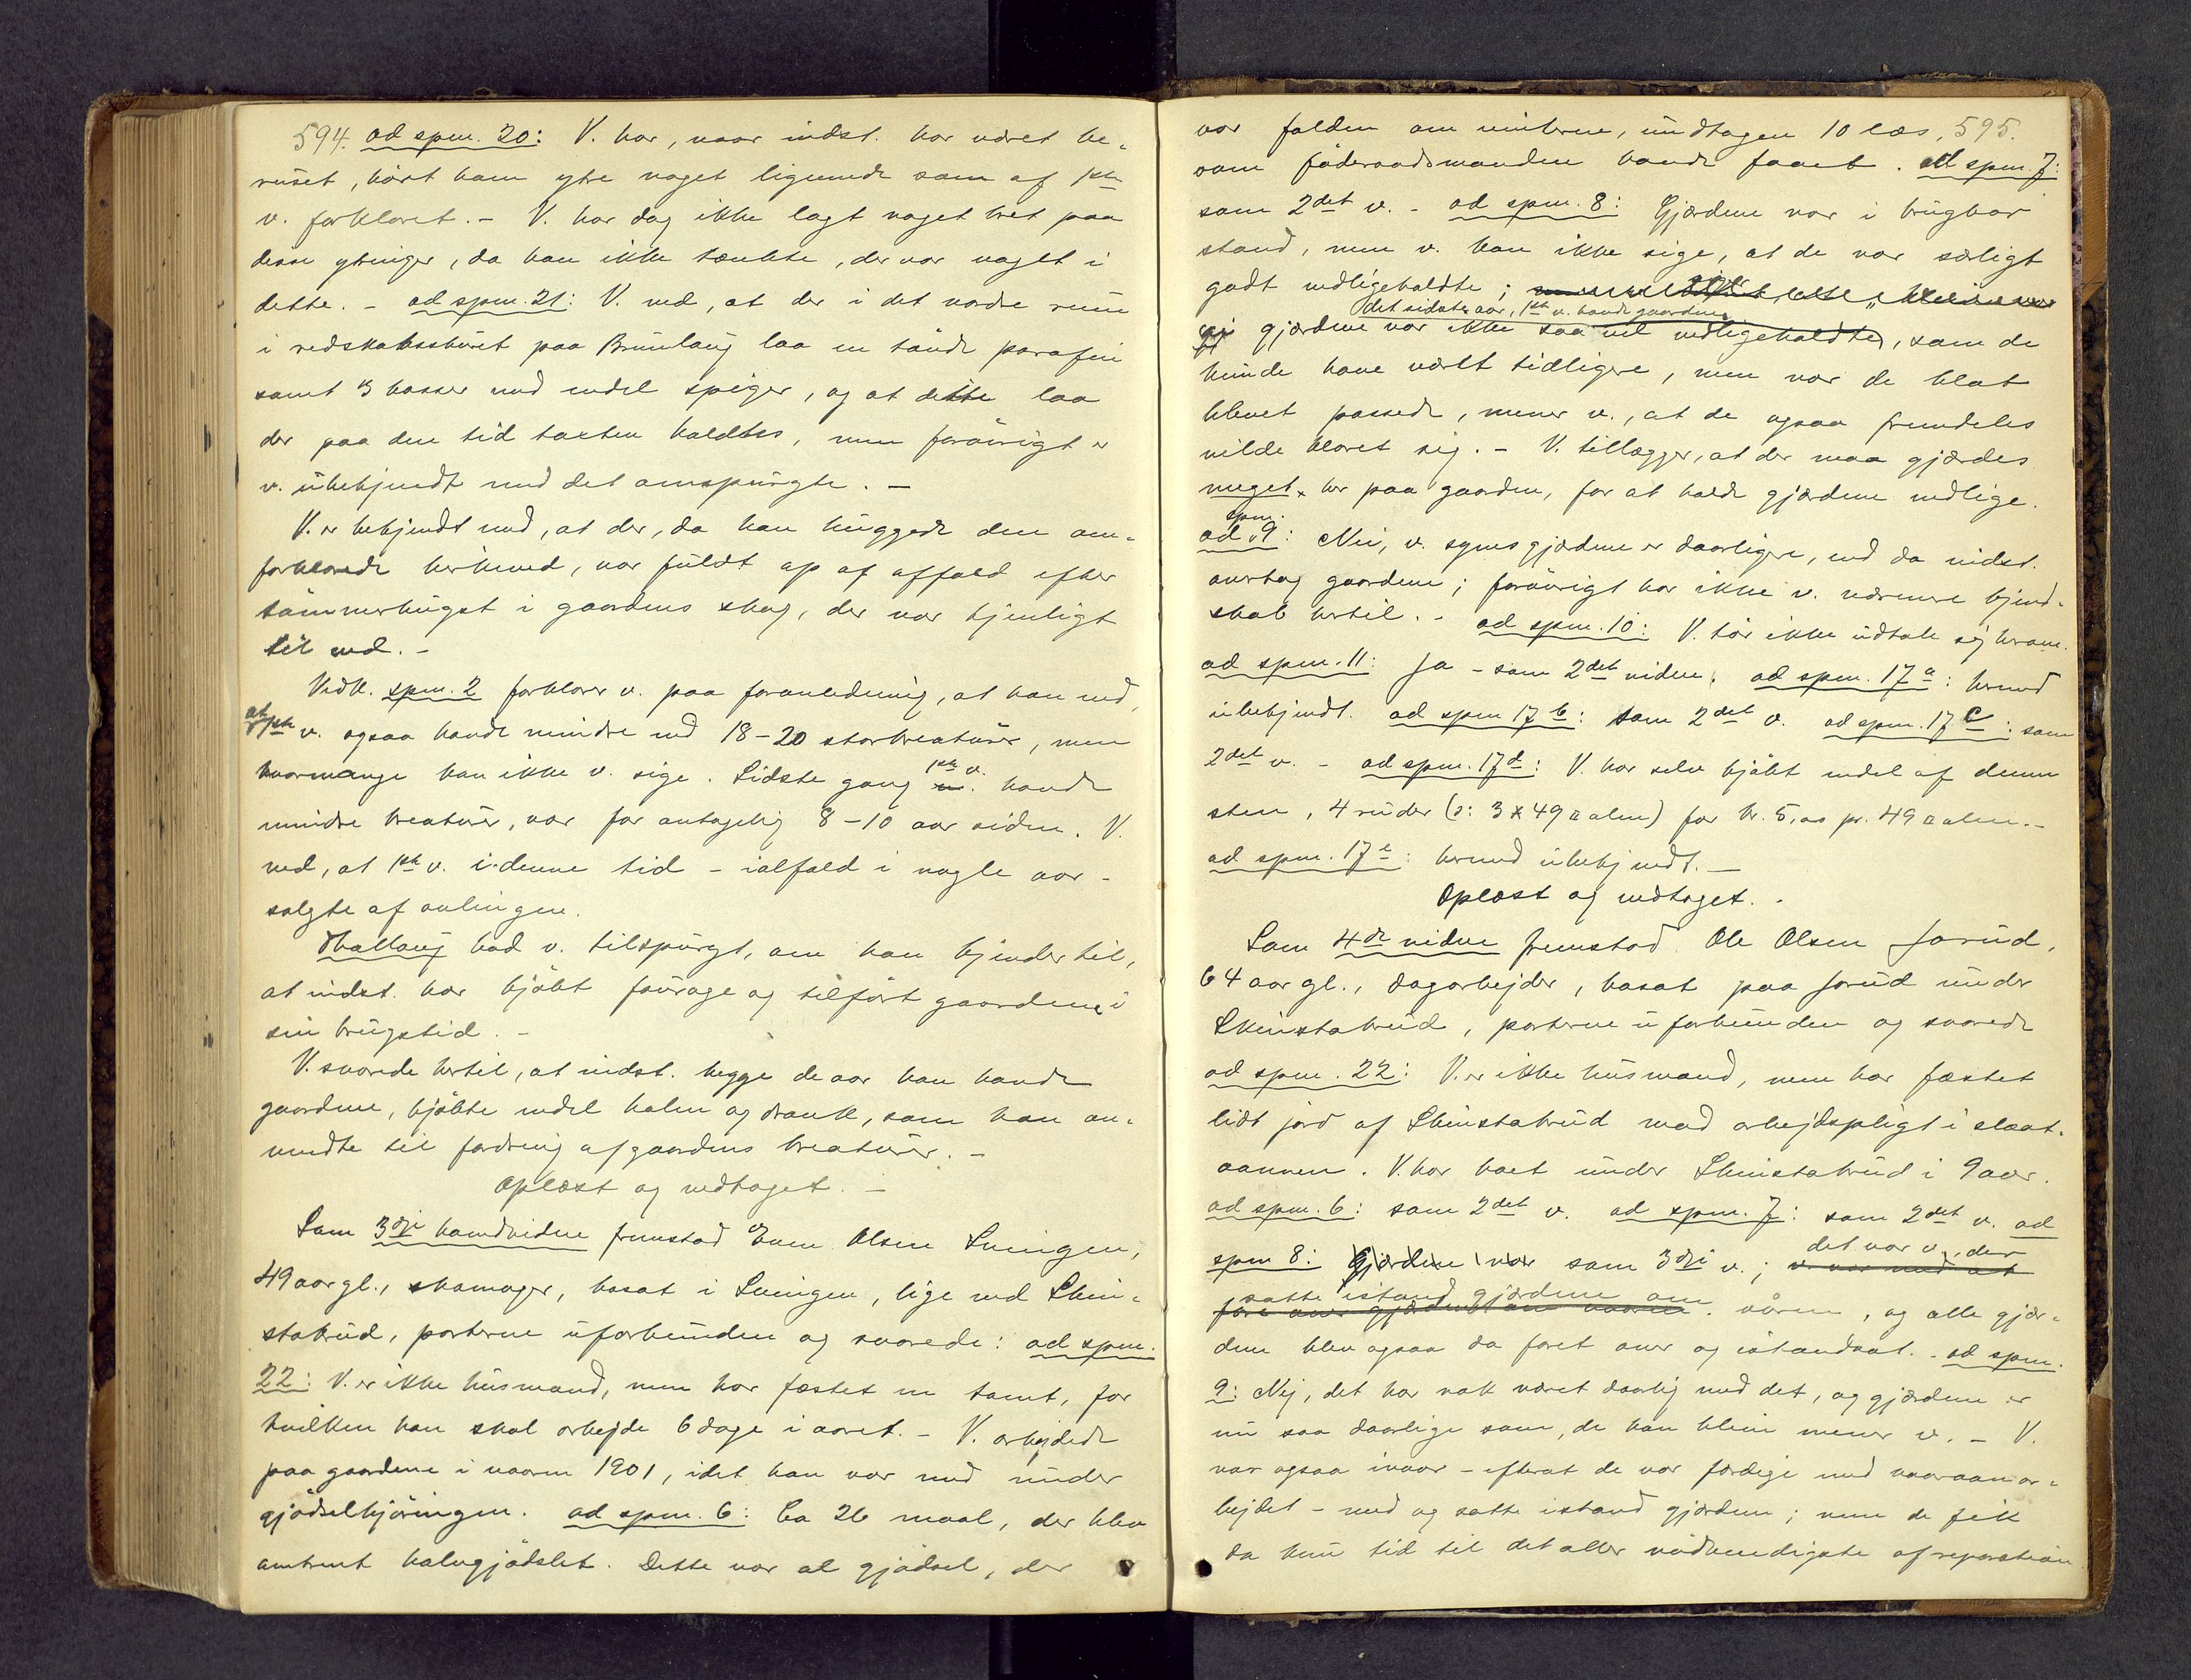 594. ad spm. 20: V. har, naar indst. har været be-
ruset, hørt ham ytre noget lignende som af 1ste
v. forklaret. - V. har dog ikke lagt noget bret paa
desse ytringer, da han ikke tænkte, der var noget i
dette. - ad spm. 21: V. ved, at der i det nordre rum
i redskabsburet paa Brunlaug laa en tønde parafin
samt 3 kasser med endel spiger, og at dette laa
der paa den tid taxten holdtes, men forøvrigt er
v. ubekjendt med det omspurgte. -
V. er bekjendt med, at der, da han huggede den om-
forklarede birkeved, var fuldt op af affald efter
tømmerhugst i gaardens skog, der var tjenligt
til ved. -
Vedk. spm. 2 forklarer v. paa foranledning, at han ved,
at 1ste v. ogsaa havde mindre end 18-20 storkreaturer, men
hvormange kan ikke v. sige. Sidste gang 1ste v. havde
mindre kreaturer, var for antagelig 8-10 aar siden. V.
ved, at 1ste v. i denne tid - ialfald i nogle aar -
solgte af avlingen.
Hallaug bad v. tilspurgt, om han kjender til,
at indst. har kjøbt fourage og tilført gaardene i
sin brugstid. -
V. svarede hertil, at indst. begge de aar han havde
gaardene, kjøbte endel halm og drank, som han an-
vendte til fodring af gaardens kreaturer. -
Oplæst og vedtaget. -
Som 3die hovedvidne fremstod Even Olsen Svingen,
49 aar gl., skomager, bosat i Svingen, lige ved Skin-
stakrud, parterne uforbunden og svarede: ad spm.
22: V. er ikke husmand, men har fæstet en tomt, for
hvilken han skal arbejde 6 dage i aaret. - V. arbejdede
paa gaardene i vaaren 1901, idet han var med under
gjødselkjøringen. ad spm. 6: Ca 26 maal, der blev
omtrent halvgjødslet. Dette var al gjødsel, der
var falden om vinteren, undtagen 10 læs, 595.
som føderaadsmanden havde faaet. ad spm. 7:
som 2det v. - ad spm. 8: Gjærdene var i brugbar
stand, men v. kan ikke sige, at de var særligt
godt vedligeholdte;
det sidste aar, 1ste v. havde gaardene
gjærdene var ikke saa vel vedligeholdte, som de
kunde have vært tidligere, men var de blot
blevet passede, mener v., at de ogsaa fremdeles
vilde klaret sig. - V. tillægger, at der maa gjærdes
meget her paa gaarden, for at holde gjærdene vedlige.
spm.
ad 9: Nei, v. synes gjærdene er daarligere, end da indst.
overtog gaardene; forøvrigt har ikke v. nærmere kjend-
skab hertil. - ad spm. 10: V. tør ikke udtale sig herom.
ad spm. 11: Ja - som 2det vidne. ad spm. 17a: hermed
ubekjendt. ad spm 17b: som 2det v. ad spm. 17c: som
2det v. - ad spm. 17d: V. har selv kjøbt endel af denne
sten, 4 ruder (ɔ: 3 x 49 □ alen) for kr. 5,00 pr. 49 □ alen. -
ad spm. 17e: hermed ubekjendt. -
Oplæst og vedtaget. -
Som 4de vidne fremstod Ole Olsen Jorud,
64 aar gl., dagarbejder, bosat paa Jorud under
Skinstakrud, parterne uforbunden og svarede
ad spm. 22: V. er ikke husmand, men har fæstet
lidt jord af Skinstakrud mod arbejdspligt i slaat-
aannen. V. har boet under Skinstakrud i 9 aar.
ad spm. 6: som 2det v. ad spm. 7: som 2det v. ad
spm 8: Gjærdene var som 3die v.; det var v., der
satte istand gjærdene om våren, og alle gjær-
dene blev ogsaa da faret over og istandsat. - ad spm.
9: Nej, det har nok været daarlig med det, og gjærdene er
nu saa daarlige som, de kan blive mener v. - V.
var ogsaa ivaar - efterat de var færdige med vaaraanar-
bejdet - med og satte istand gjærdene; men de fik
da kun tid til det aller nødvendigste af reparation